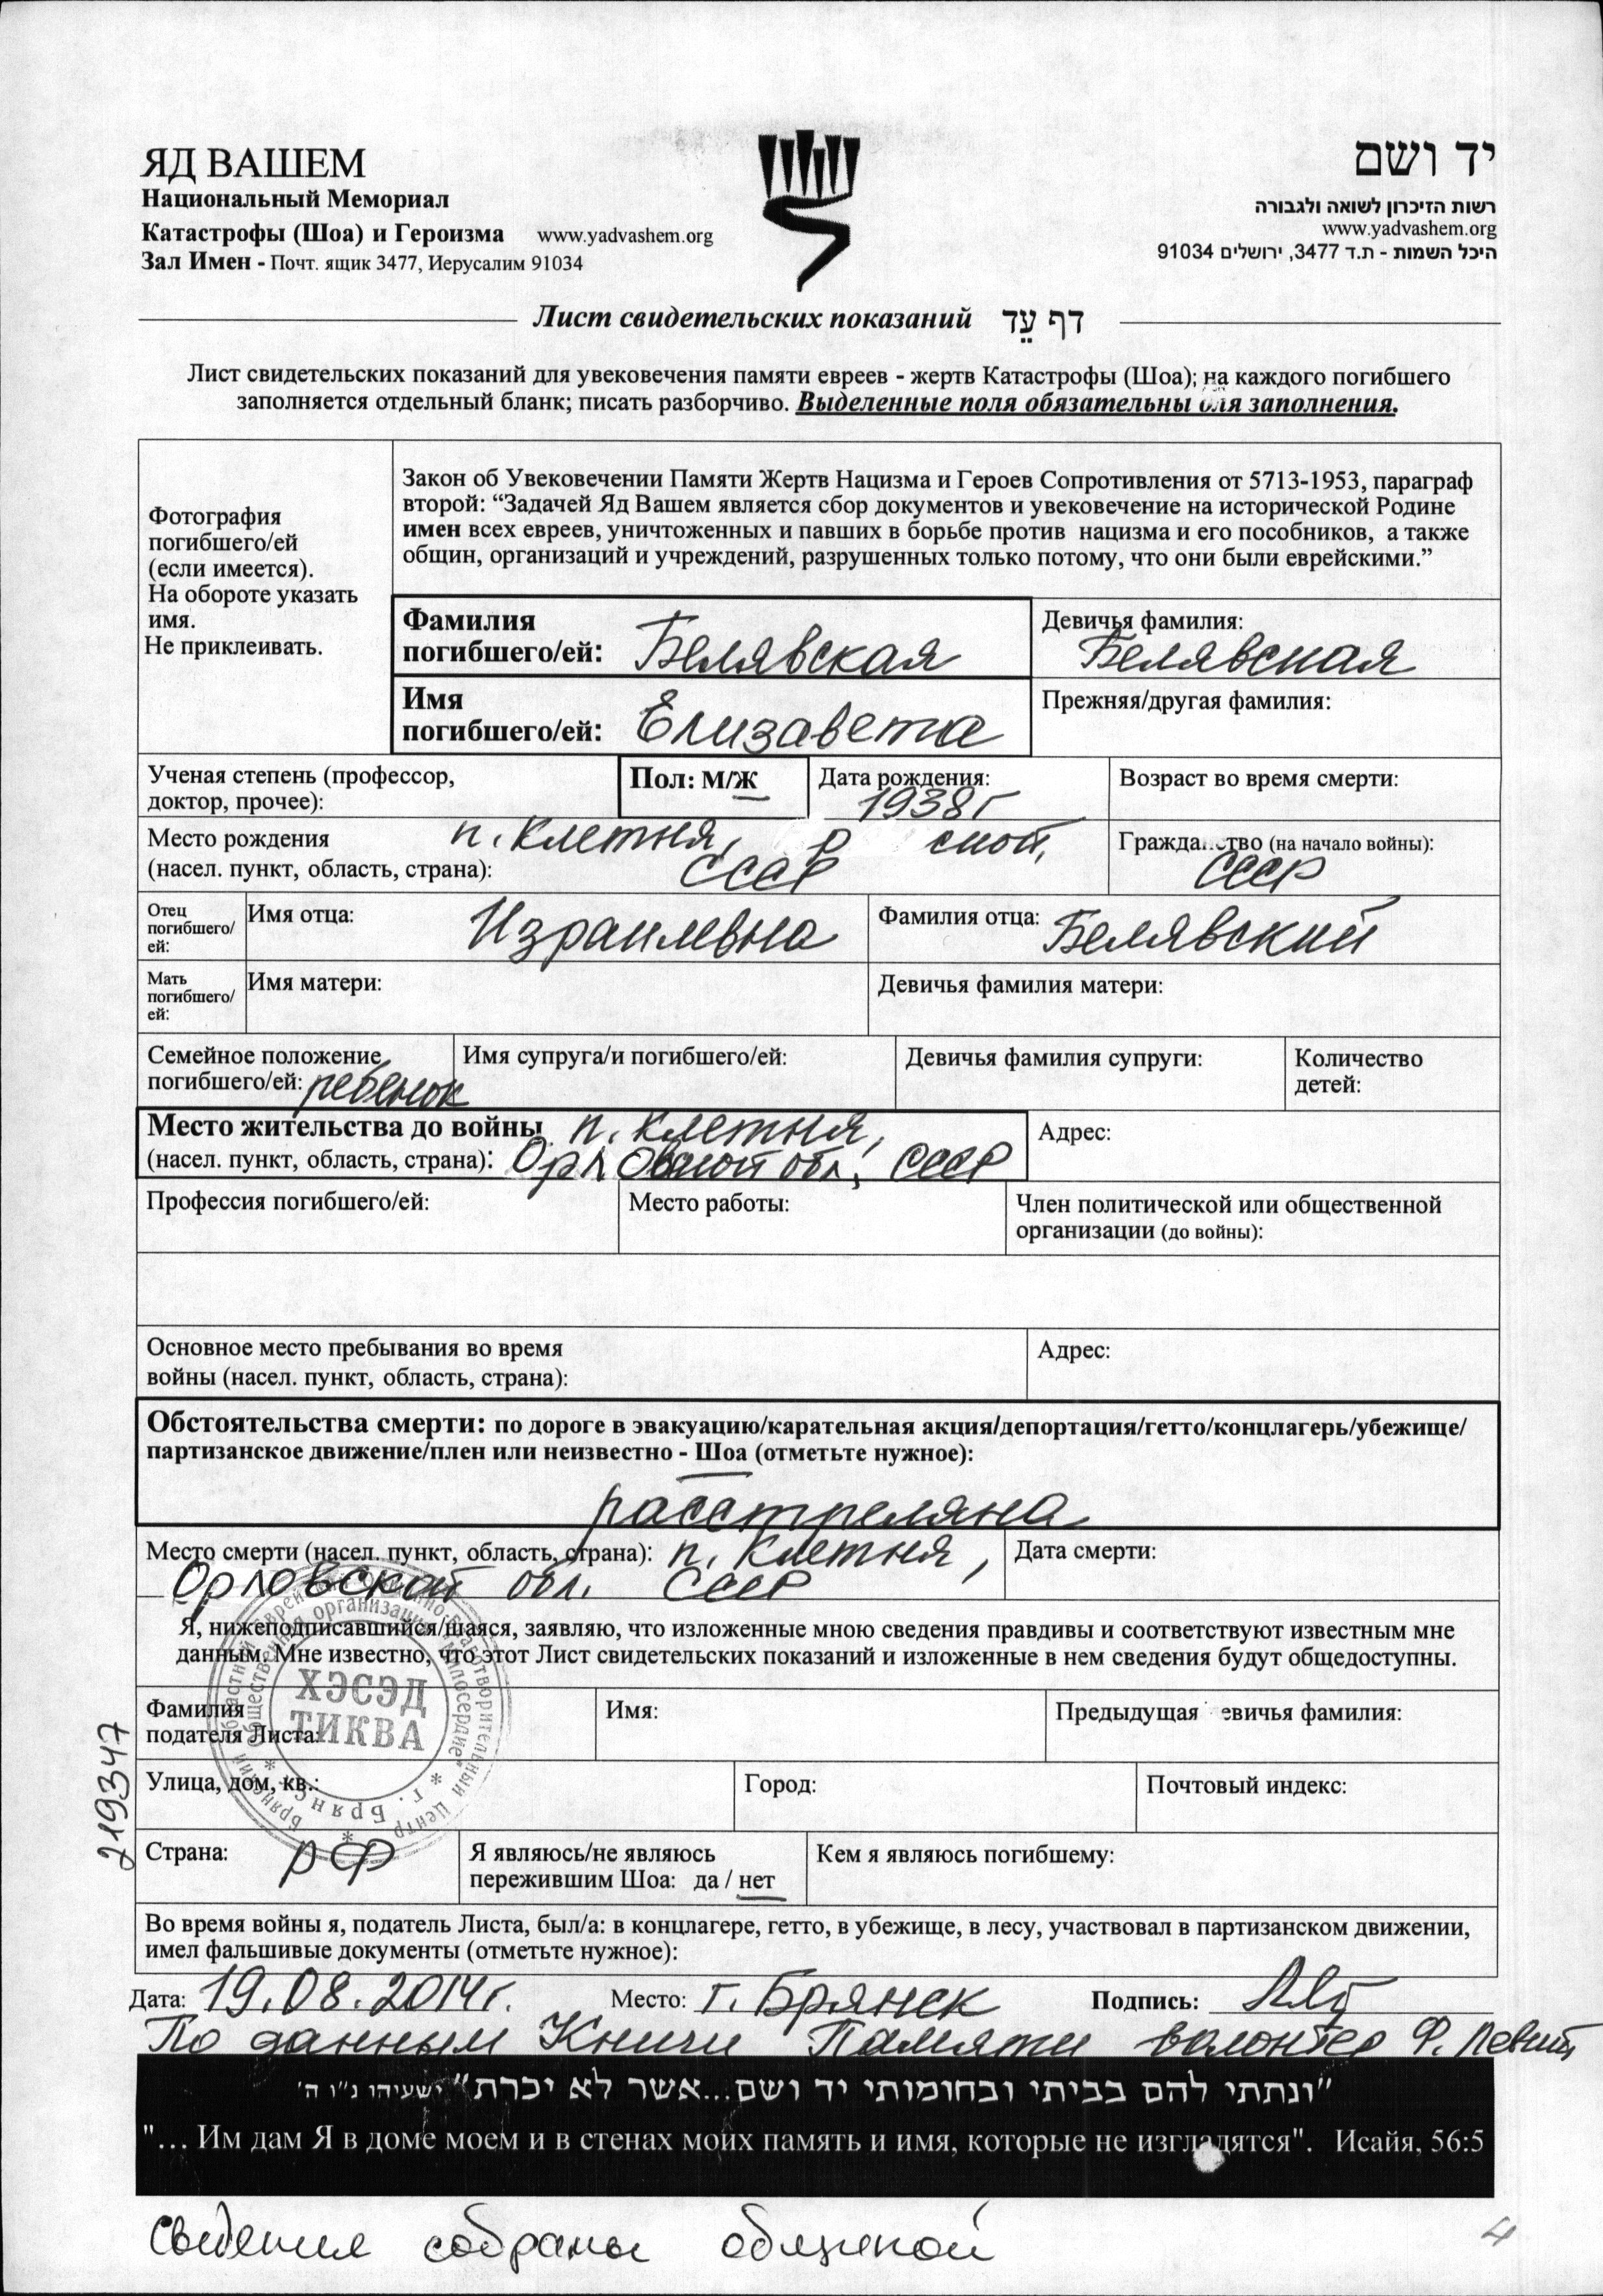 ЯД ВАШЕМ
Национальный Мемориал
Катастрофы (Шоа) и Героизма www.yadvashem.org
Зал Имен - Почт. ящик 3477, Иерусалим 91034
יד ושם
רשות הזיכרון לשואה ולגבורה
www.yadvashem.org
היכל השמות - ת.ד 3477, ירושלים 91034
Лист свидетельских показаний דף עֵד
Лист свидетельских показаний для увековечения памяти евреев - жертв Катастрофы (Шоа); на каждого погибшего
заполняется отдельный бланк; писать разборчиво. Выделенные поля обязательны для заполнения.
Фотография
погибшего/ей
(если имеется).
На обороте указать
имя.
Не приклеивать.
Закон об Увековечении Памяти Жертв Нацизма и Героев Сопротивления от 5713-1953, параграф
второй: “Задачей Яд Вашем является сбор документов и увековечение на исторической Родине
имен всех евреев, уничтоженных и павших в борьбе против нацизма и его пособников, а также
общин, организаций и учреждений, разрушенных только потому, что они были еврейскими.”
Фамилия
погибшего/ей: Белявская
Девичья фамилия:
Белявская
Имя
погибшего/ей: Елизавета
Прежняя/другая фамилия:
Ученая степень (профессор,
доктор, прочее):
Пол: М/Ж
Дата рождения:
1938г
Возраст во время смерти:
Место рождения п. Клетня,
(насел. пункт, область, страна): СССР
Гражда..ство (на начало войны):
СССР
Отец
погибшего/
ей:
Имя отца: Израилевна
Фамилия отца: Белявский
Мать
погибшего/
ей:
Имя матери:
Девичья фамилия матери:
Семейное положение
погибшего/ей: ребенок
Имя супруга/и погибшего/ей:
Девичья фамилия супруги:
Количество
детей:
Место жительства до войны п. Клетня,
(насел. пункт, область, страна): Орловской обл., СССР
Адрес:
Профессия погибшего/ей:
Место работы:
Член политической или общественной
организации (до войны):
Основное место пребывания во время
войны (насел. пункт, область, страна):
Адрес:
Обстоятельства смерти: по дороге в эвакуацию/карательная акция/депортация/гетто/концлагерь/убежище/
партизанское движение/плен или неизвестно - Шоа (отметьте нужное):
расстреляна
Место смерти (насел. пункт, область, страна): п. Клетня,
Орловской обл. СССР
Дата смерти:
Я, нижеподписавшийся/шаяся, заявляю, что изложенные мною сведения правдивы и соответствуют известным мне
данным. Мне известно, что этот Лист свидетельских показаний и изложенные в нем сведения будут общедоступны.
ХЭСЭД
ТИКВА
г. Брянск
Фамилия
подателя Листа:
Имя:
Предыдущая евичья фамилия:
Улица, дом, кв.:
Город:
Почтовый индекс:
219347
Страна: РФ
Я являюсь/не являюсь
пережившим Шоа: да / нет
Кем я являюсь погибшему:
Во время войны я, податель Листа, был/а: в концлагере, гетто, в убежище, в лесу, участвовал в партизанском движении,
имел фальшивые документы (отметьте нужное):
Дата: 19.08.2014г. Место: г. Брянск Подпись:
По данным Книги Памяти волонтер Ф. Левит
"ונתתי להם בביתי ובחומותי יד ושם...אשר לא יכרת" ישעיהו נ"ו ה'
"... Им дам Я в доме моем и в стенах моих память и имя, которые не изгладятся". Исайя, 56:5
Сведения собраны общиной
4